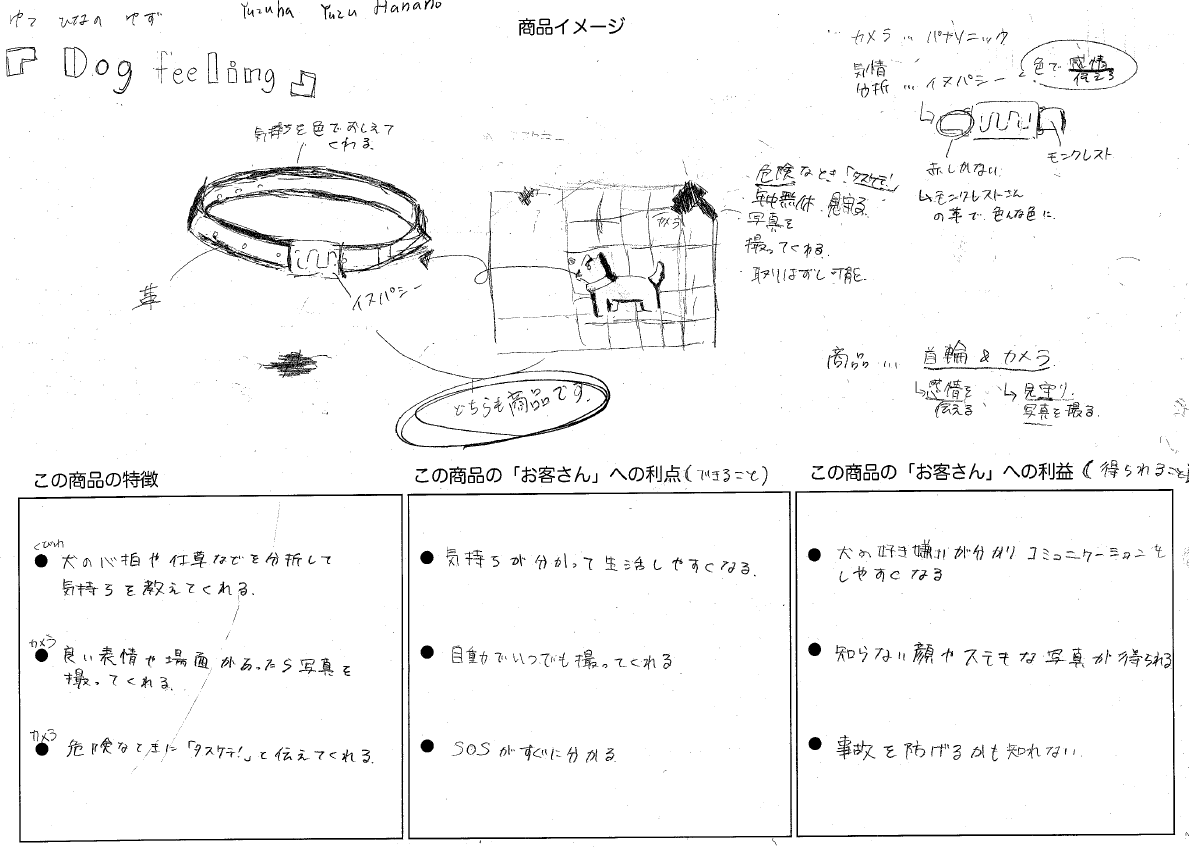 ゆて ひなの ゆず
Yuzuha Yuzu Hanano
商品イメージ
『Dog feeling』
カメラ … パナソニック
気情
分析 … イヌパシー
色で 感情
伝える
モンクレスト
赤しかない
↳モンクレストさん
の革で、色んな色に。
気持ちを色でおしえて
くれる
革
イヌパシー
カメラ
危険なとき「タスケテ!」
見守る
写真を
撮ってくれる
・取りはずし可能
どちらも商品です.
商品 … 首輪 & カメラ
↳感情を
伝える
↳見守り.
写真を撮る.
この商品の特徴
くびわ
● 犬の心拍や仕草などを分析して
気持ちを教えてくれる.
カメラ
● 良い表情や場面があったら写真を
撮ってくれる.
カメラ
● 危険なときに「タスケテ!」と伝えてくれる.
この商品の「お客さん」への利点(できること)
● 気持ちが分かって生活しやすくなる.
● 自動でいつでも撮ってくれる
● SOSがすぐに分かる.
この商品の「お客さん」への利益(得られること)
● 犬の好き嫌いが分かり コミュニケーションを
しやすくなる
● 知らない顔やステキな写真が得られる
● 事故を防げるかも知れない.